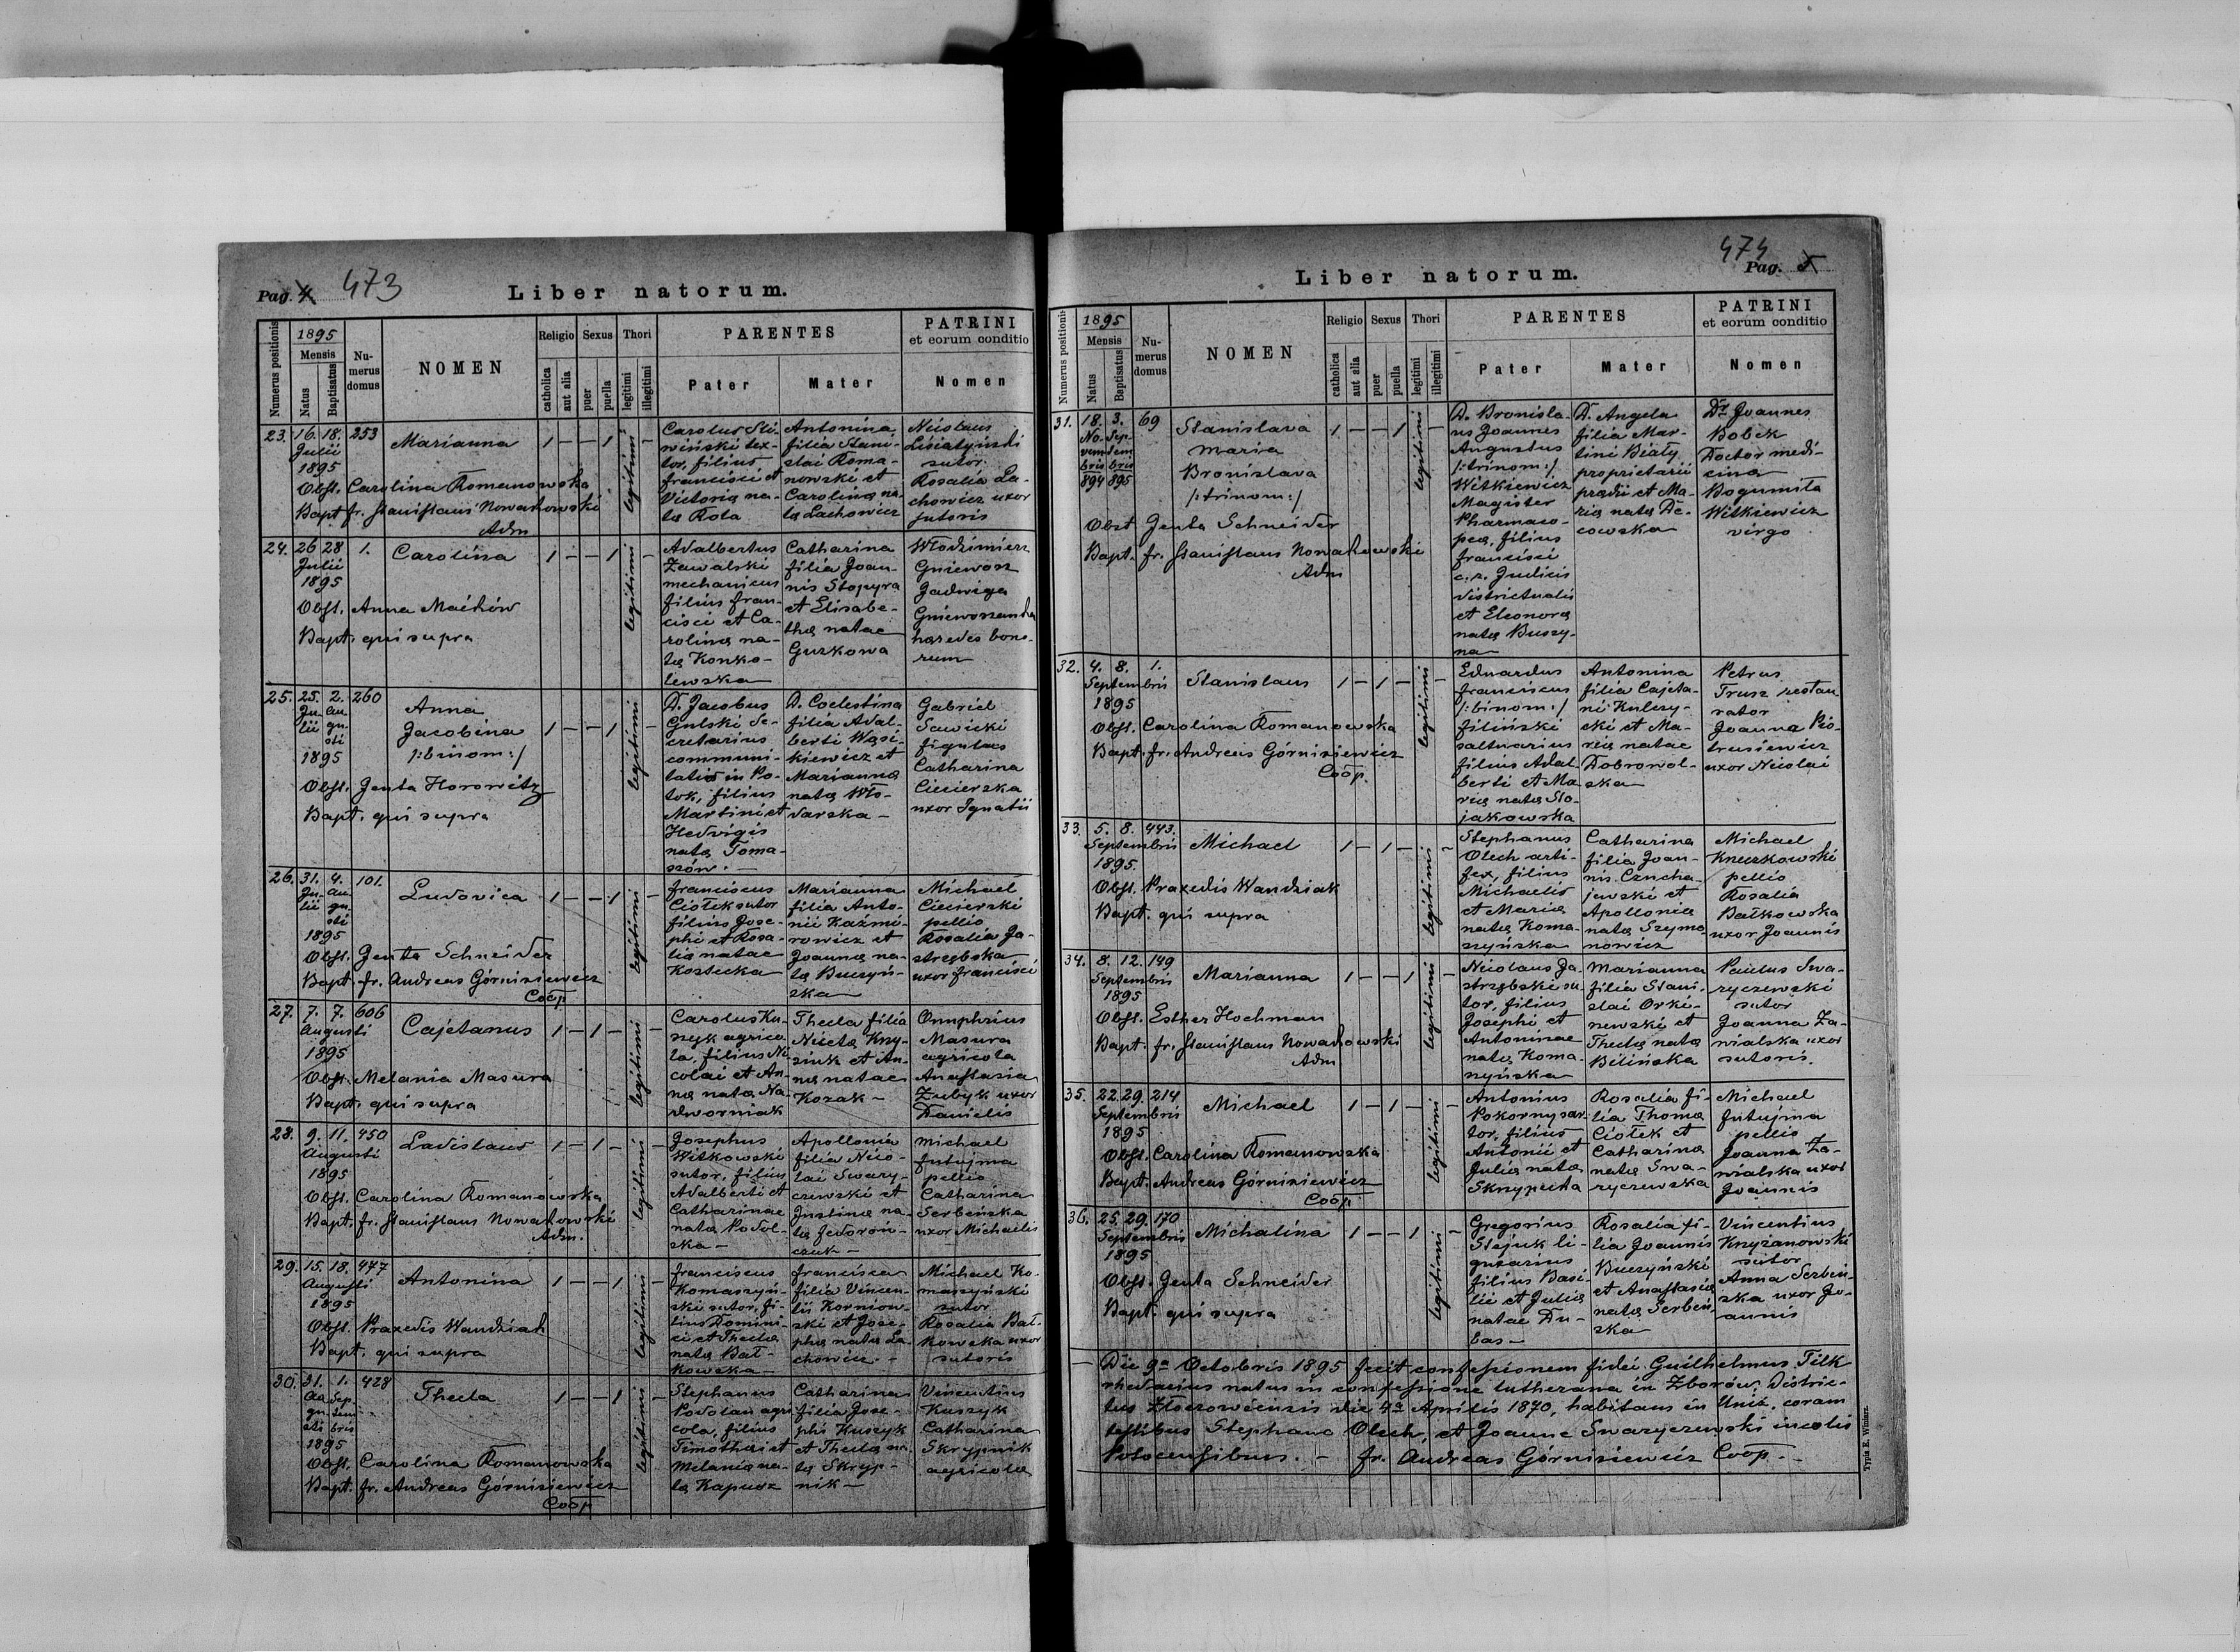 Pag. 4 473
Liber natorum.
Numerus positionis
1895
Mensis
Natus
Baptisatus
Numerus domus
NOMEN
Religio
catholica
aut alia
Sexus
puer
puella
Thori
legitimi
illegitimi
PARENTES
Pater
Mater
PATRINI
et eorum conditio
Nomen
23. 16. 18. 253
Julii
1895
Marianna
1 – – 1 legitimi –
Obst. Carolina Romanowska
Bapt. fr. Stanislaus Nowakowski
Adm
Carolus Sli-
wiński tex-
tor, filius
Francisci et
Victoriæ na-
tæ Rola
Antonina
filia Stani-
slai Roma-
nowski et
Carolinæ na-
tæ Lachowicz
Nicolaus
Lisiatyński
sutor.
Rosalia La-
chowicz uxor
sutoris
24. 26 28 1.
Julii
1895
Carolina
1 – – 1 legitimi –
Obst. Anna Maćków
Bapt. qui supra
Adalbertus
Zawalski
mechanicus
filius Fran-
cisci et Ca-
rolinæ na-
tæ Konko-
lewska
Catharina
filia Joan-
nis Stopyra
et Elisabe-
thæ natae
Guzkowa
Włodzimierz
Gniewosz
Jadwiga
Gniewoszanka
hæredes bono-
rum
25. 25. 2. 260
Ju- Au-
lii gu-
sti
1895
Anna
Jacobina
/:binom:/
1 – – 1 legitimi –
Obst. Genta Horowitz
Bapt. qui supra
D. Jacobus
Gulski Se-
cretarius
communi-
tatis in Po-
tok, filius
Martini et
Hedvigis
natæ Toma-
szów. –
D. Coelestina
filia Adal-
berti Wąsi-
kiewicz et
Mariannæ
natæ Wło-
darska –
Gabriel
Sawicki
figulus
Catharina
Ciecierska
uxor Ignatii
26. 31. 4. 101.
Ju- Au-
lii gu-
sti
1895
Ludovica
1 – – 1 legitimi –
Obst. Genta Schneider
Bapt. fr. Andreas Górnisiewicz
Coop
Franciscus
Ciołek sutor
filius Jose-
phi et Rosa-
liæ natae
Kostecka
Marianna
filia Anto-
nii Kaźmi-
rowicz et
Joannæ na-
tæ Buczyń-
ska
Michael
Ciecierski
pellio
Rosalia Ja-
strzębska
uxor Francisci
27. 7. 7. 606
Augusti
1895
Cajetanus
1 – 1 – legitimi –
Obst. Melania Masura
Bapt. qui supra
Carolus Ku-
szyk agrico-
la, filius Ni-
colai et An-
næ natæ Na-
dworniak
Thecla filia
Nicetæ Kny-
ziuk et An-
næ natae
Kozak –
Onuphrius
Masura
agricola
Anastasia
Zubyk uxor
Danielis
28. 9. 11. 450
Augusti
1895
Ladislaus
1 – 1 – legitimi –
Obst. Carolina Romanowska
Bapt. fr. Stanislaus Nowakowski
Adm.
Josephus
Witkowski
sutor, filius
Adalberti et
Catharinae
natæ Podol-
ska –
Apollonia
filia Nico-
lai Swary-
czewski et
Justinæ na-
tæ Fedoroń-
czuk –
Michael
Futujma
pellio
Catharina
Serbeńska
uxor Michaelis
29. 15. 18. 477
Augusti
1895
Antonina
1 – – 1 legitimi –
Obst. Praxedis Wandziak
Bapt. qui supra
Franciscus
Komaszyń-
ski sutor, fi-
lius Domini-
ci et Theclæ
natæ Bał-
kowska –
Francisca
filia Vincen-
tii Korniow-
ski et Jose-
phæ natæ La-
chowicz. –
Michael Ko-
maszyński
sutor
Rosalia Bał-
kowska uxor
sutoris
30. 31. 1. 428
Au- Sep-
gu- tem
sti bris
1895
Thecla
1 – – 1 legitimi –
Obst. Carolina Romanowska
Bapt. fr. Andreas Górnisiewicz
Coop
Stephanus
Podolan agri-
cola, filius
Timothei et
Melaniæ na-
tæ Kapusz
Catharina
filia Jose-
phi Kuszyk
et Theclæ na-
tæ Skryp-
nik –
Vincentius
Kuszyk
Catharina
Skrypnik
agricolæ
474
Pag. 5
Liber natorum.
Numerus positionis
1895
Mensis
Natus
Baptisatus
Numerus domus
NOMEN
Religio
catholica
aut alia
Sexus
puer
puella
Thori
legitimi
illegitimi
PARENTES
Pater
Mater
PATRINI
et eorum conditio
Nomen
31. 18. 3. 69
No- Sep-
vem tem
bris bris
894 895
Stanislava
Maria
Bronislava
/:trinom:/
1 – – 1 legitimi –
Obst Genta Schneider
Bapt. fr. Stanislaus Nowakowski
Adm
D. Bronisla-
us Joannes
Augustus
/:trinom:/
Witkiewicz
Magister
Pharmaco-
peæ, filius
Francisci
c. r. Judicis
districtualis
et Eleonoræ
natæ Buszy-
na
D. Angela
filia Mar-
tini Biały
proprietarii
prædii et Ma-
riæ natæ De-
cowska
Dr Joannes
Bobek
Doctor medi-
cinæ
Bogumiła
Witkiewicz
virgo
32. 4. 8. 1.
Septembris
1895
Stanislaus
1 – 1 – legitimi –
Obst. Carolina Romanowska
Bapt. fr. Andreas Górnisiewicz
Coop.
Eduardus
Franciscus
/:binom:/
Filiński
saltuarius
filius Adal-
berti et Ma-
riæ natæ Sto-
jakowska
Antonina
filia Cajeta-
ni Kulczy-
cki et Ma-
riæ natae
Dobrowol-
ska
Petrus
Trusz restau
rator
Joanna Pio-
trusiewicz
uxor Nicolai
33. 5. 8. 443.
Septembris
1895.
Michael
1 – 1 – legitimi –
Obst. Praxedis Wandziak
Bapt. qui supra
Stephanus
Olech arti-
fex, filius
Michaelis
et Mariæ
natæ Koma-
szyńska
Catharina
filia Joan-
nis Czucha-
jewski et
Apolloniæ
natæ Szymo
nowicz
Michael
Kruczkowski
pellio
Rosalia
Bałkowska
uxor Joannis
34. 8. 12. 149
Septembris
1895
Marianna
1 – – 1 legitimi –
Obst. Esther Hochman
Bapt. fr. Stanislaus Nowakowski
Adm
Nicolaus Ja-
strzębski su-
tor, filius
Josephi et
Antoninae
natæ Koma-
szyńska
Marianna
filia Stani-
slai Orki-
newski et
Theclæ natæ
Bilińska
Paulus Swa-
ryczewski
sutor
Joanna Za-
wialska uxor
sutoris.
35. 22. 29. 214
Septembris
1895
Michael
1 – 1 – legitimi –
Obst. Carolina Romanowska
Bapt. Andreas Górnisiewicz
Coop
Antonius
Pokorny sar-
tor, filius
Antonii et
Juliæ natæ
Skrzypecka
Rosalia fi-
lia Thomæ
Ciołek et
Catharinæ
natæ Swa-
ryczewska
Michael
Futujma
pellio
Joanna Za-
wialska uxor
Joannis
36. 25. 29. 170
Septembris
1895
Michalina
1 – – 1 legitimi –
Obst. Genta Schneider
Bapt. qui supra
Gregorius
Stajuk li-
gnarius
filius Basi-
lii et Juliæ
natae Du-
bas –
Rosalia fi-
lia Joannis
Buczyński
et Anastasiæ
natæ Serbeń-
ska
Vincentius
Krzyżanowski
sutor
Anna Serbeń-
ska uxor Jo-
annis
– Die 9a Octobris 1895 fecit confessionem fidei Guilhelmus Filk
rhedarius natus in confessione lutherana in Zborów, distric-
tus Złoczowiensis die 4a Aprilis 1870, habitans in Uniż, coram
testibus Stephano Olech, et Joanne Swaryczewski incolis
Potocensibus. – fr. Andreas Górnisiewicz Coop. –
Typis E. Winiarz.